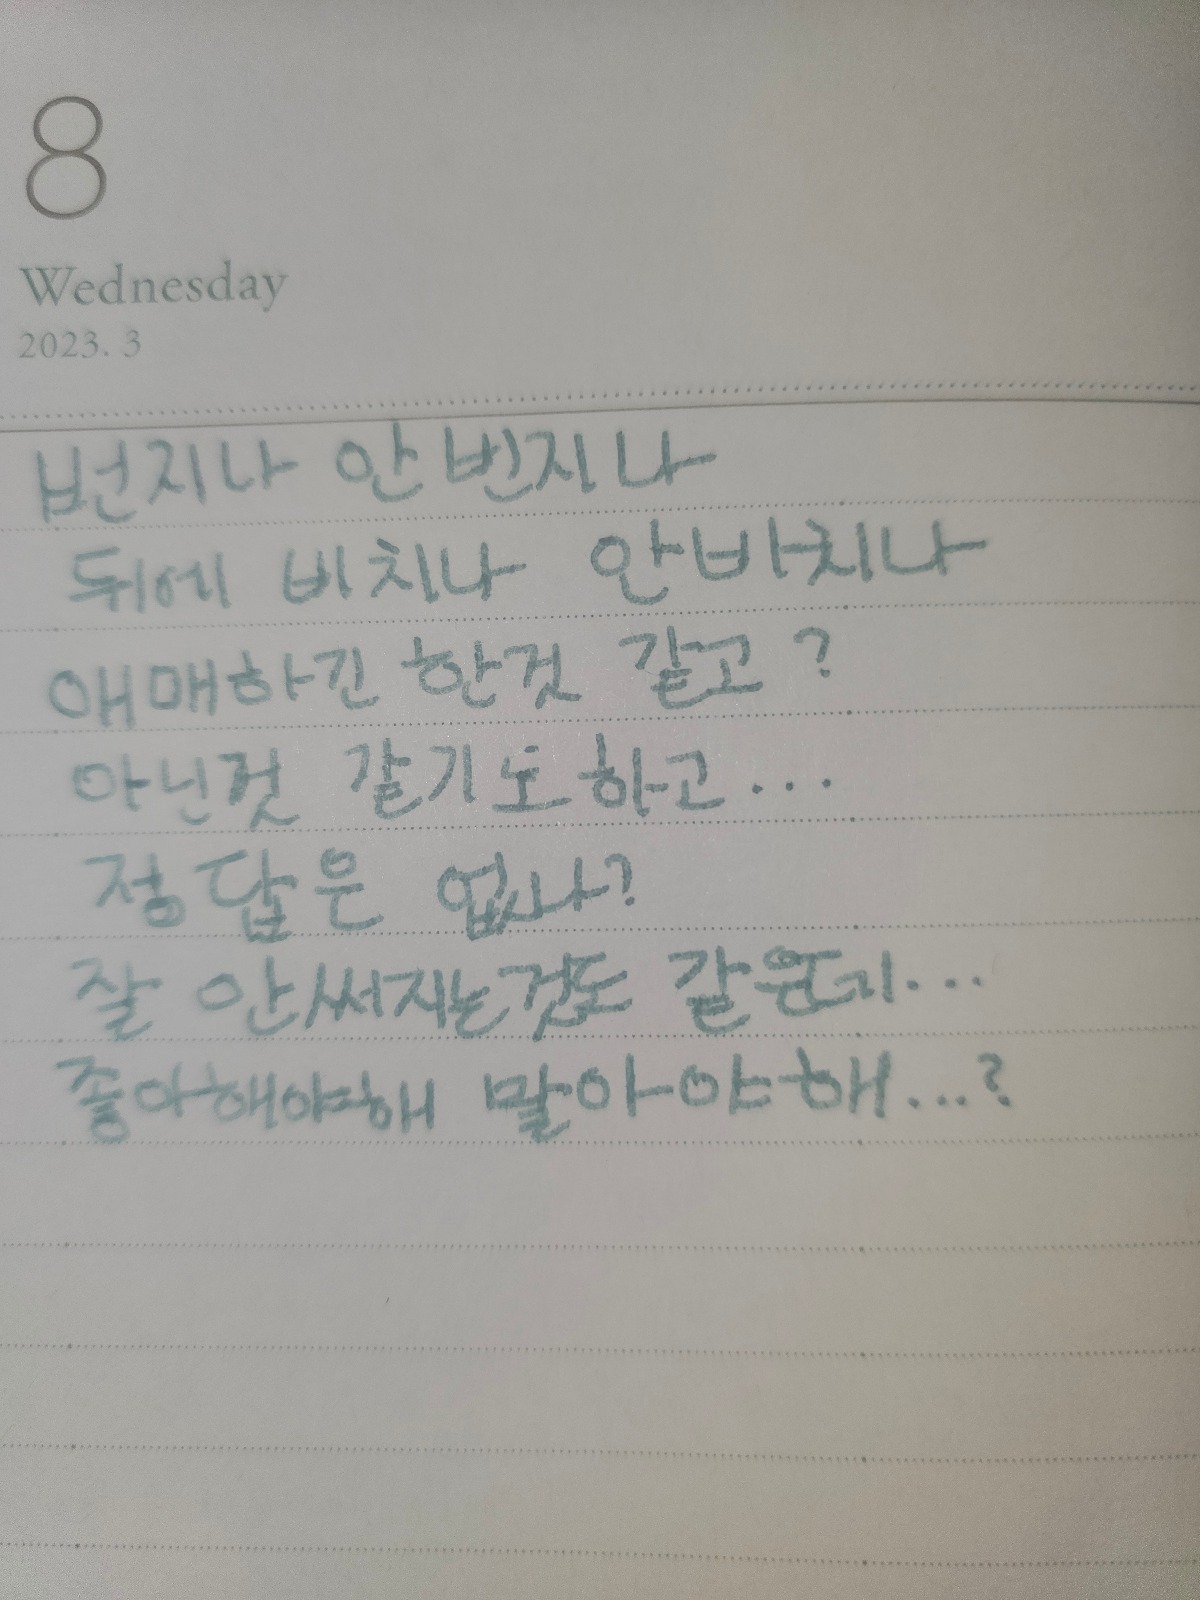 8
Wednesday
2023. 3
번지나 안번지나
뒤에 비치나 안바치나
애매하긴 한것 같고?
아닌것 같기도하고...
정답은 없나?
잘 안써지는것도 같은디...
좋아해야해 말아야해...?